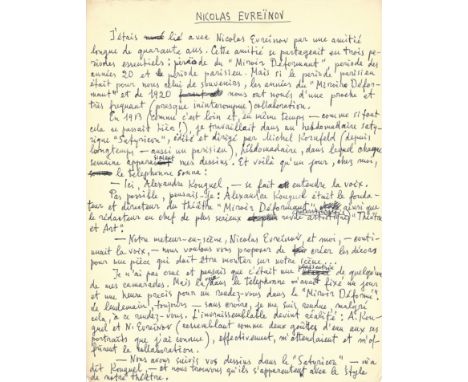 NICOLAS EVREÏNOV
J'étais lié avec Nicolas Evreïnov par une amitié
longue de quarante ans. Cette amitié se partageait en trois pé-
riodes essentiels: période du "Miroir Déformant", période des
années 20 et la période parisien. Mais si le période parisien
était pour nous celui de souvenirs, les années du "Miroire Défor-
mant" et de 1920 nous ont noués d'une proche et
très piquant (presque ininterompue) collaboration.
En 1913 (comme c'est loin et en même temps — comme si tout
cela se passait hier!) je travaillait dans un hebdomadaire saty-
rique "Satyricon", édité et dirigé par Michel Kornfeld (depuis
longtemps — aussi un parisien), hébdomadaire, dans lequel chaque
semaine apparaissaient mes dessins. Et voilà qu'un jour, chez moi,
le telephonne sonna:
— Ici, Alexandre Kouguel, — se fait entendre la voix.
Pas possible, pensai-je: Alexandre Kouguel était le fonda-
teur et directeur du théâtre "Miroir Déformant", ainsi que
le rédacteur en chef de plus serieux revue artistique "Théâtre
et Art".
— Notre meteur-en-scène, Nicolas Evreïnov et moi, — conti-
nuait la voix, — nous voulons vous proposer de créer les décors
pour une pièce qui doit être montée sur notre scène...
Je n'ai pas crue et pensait que c'était une de quelqu'un
de mes camarades. Mais la voix dans le telephonne m'avait fixé un jour
et une heure precis pour un rendez-vous dans le "Miroir Déformé".
Le lendemain, toujours — sans croire, je me suis rendue, malgré
cela, à ce rendez-vous. L'invraissemblable devint réalité: A. Kou-
guel et N. Evreïnov (ressemblant comme deux goûttes d'eau aux ses
portraits que j'ai connus), effectivement, m'attendaient et m'of-
frirent la collaboration.
— Nous avons suivis vos dessins dans le "Satyricon" — m'a
dit Kouguel, — et nous trouvons qu'ils s'apparentent avec le style
de notre théâtre.